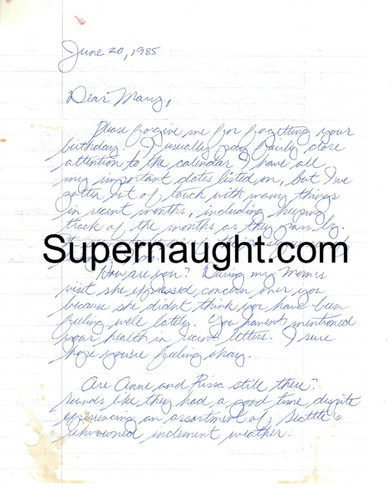 June 20, 1985
Dear Mary,
Please forgive me for forgetting your
birthday. I usually pay fairly close
attention to the calendar I have all
my important dates listed on, but I've
gotten out of touch with many things
in recent months, including keeping
track of the months as they go by.
Supernaught.com
How are you? During my Mom's
visit she expressed concern over you
because she didn't think you have been
feeling well lately. You haven't mentioned
your health in recent letters. I sure
hope you're feeling okay.
Are Anne and still there?
Sounds like they had a good time despite
experiencing an assortment of Seattle's
inclement weather.